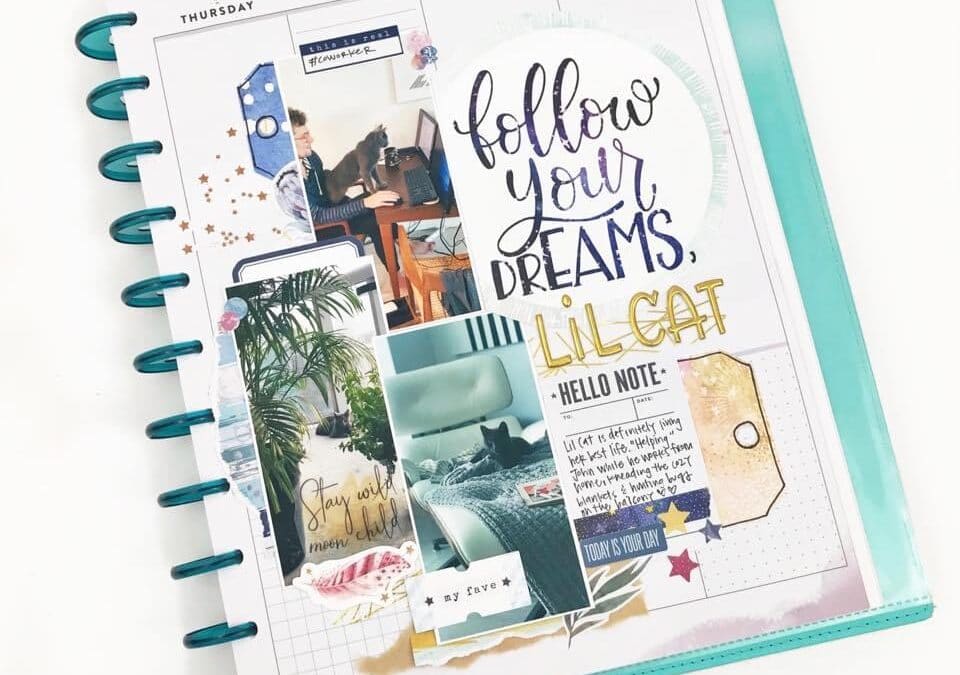 THURSDAY
this is real
#COWORKER
follow
your
DREAMS,
LiL CAT
HELLO NOTE
TO:
DATE:
Lil Cat is definitely living
her best life. "Helping"
John while he works from
home, kneading the cozy
blankets & hunting bugs
on the balcony
TODAY IS YOUR DAY
Stay wild
moon child
my fave